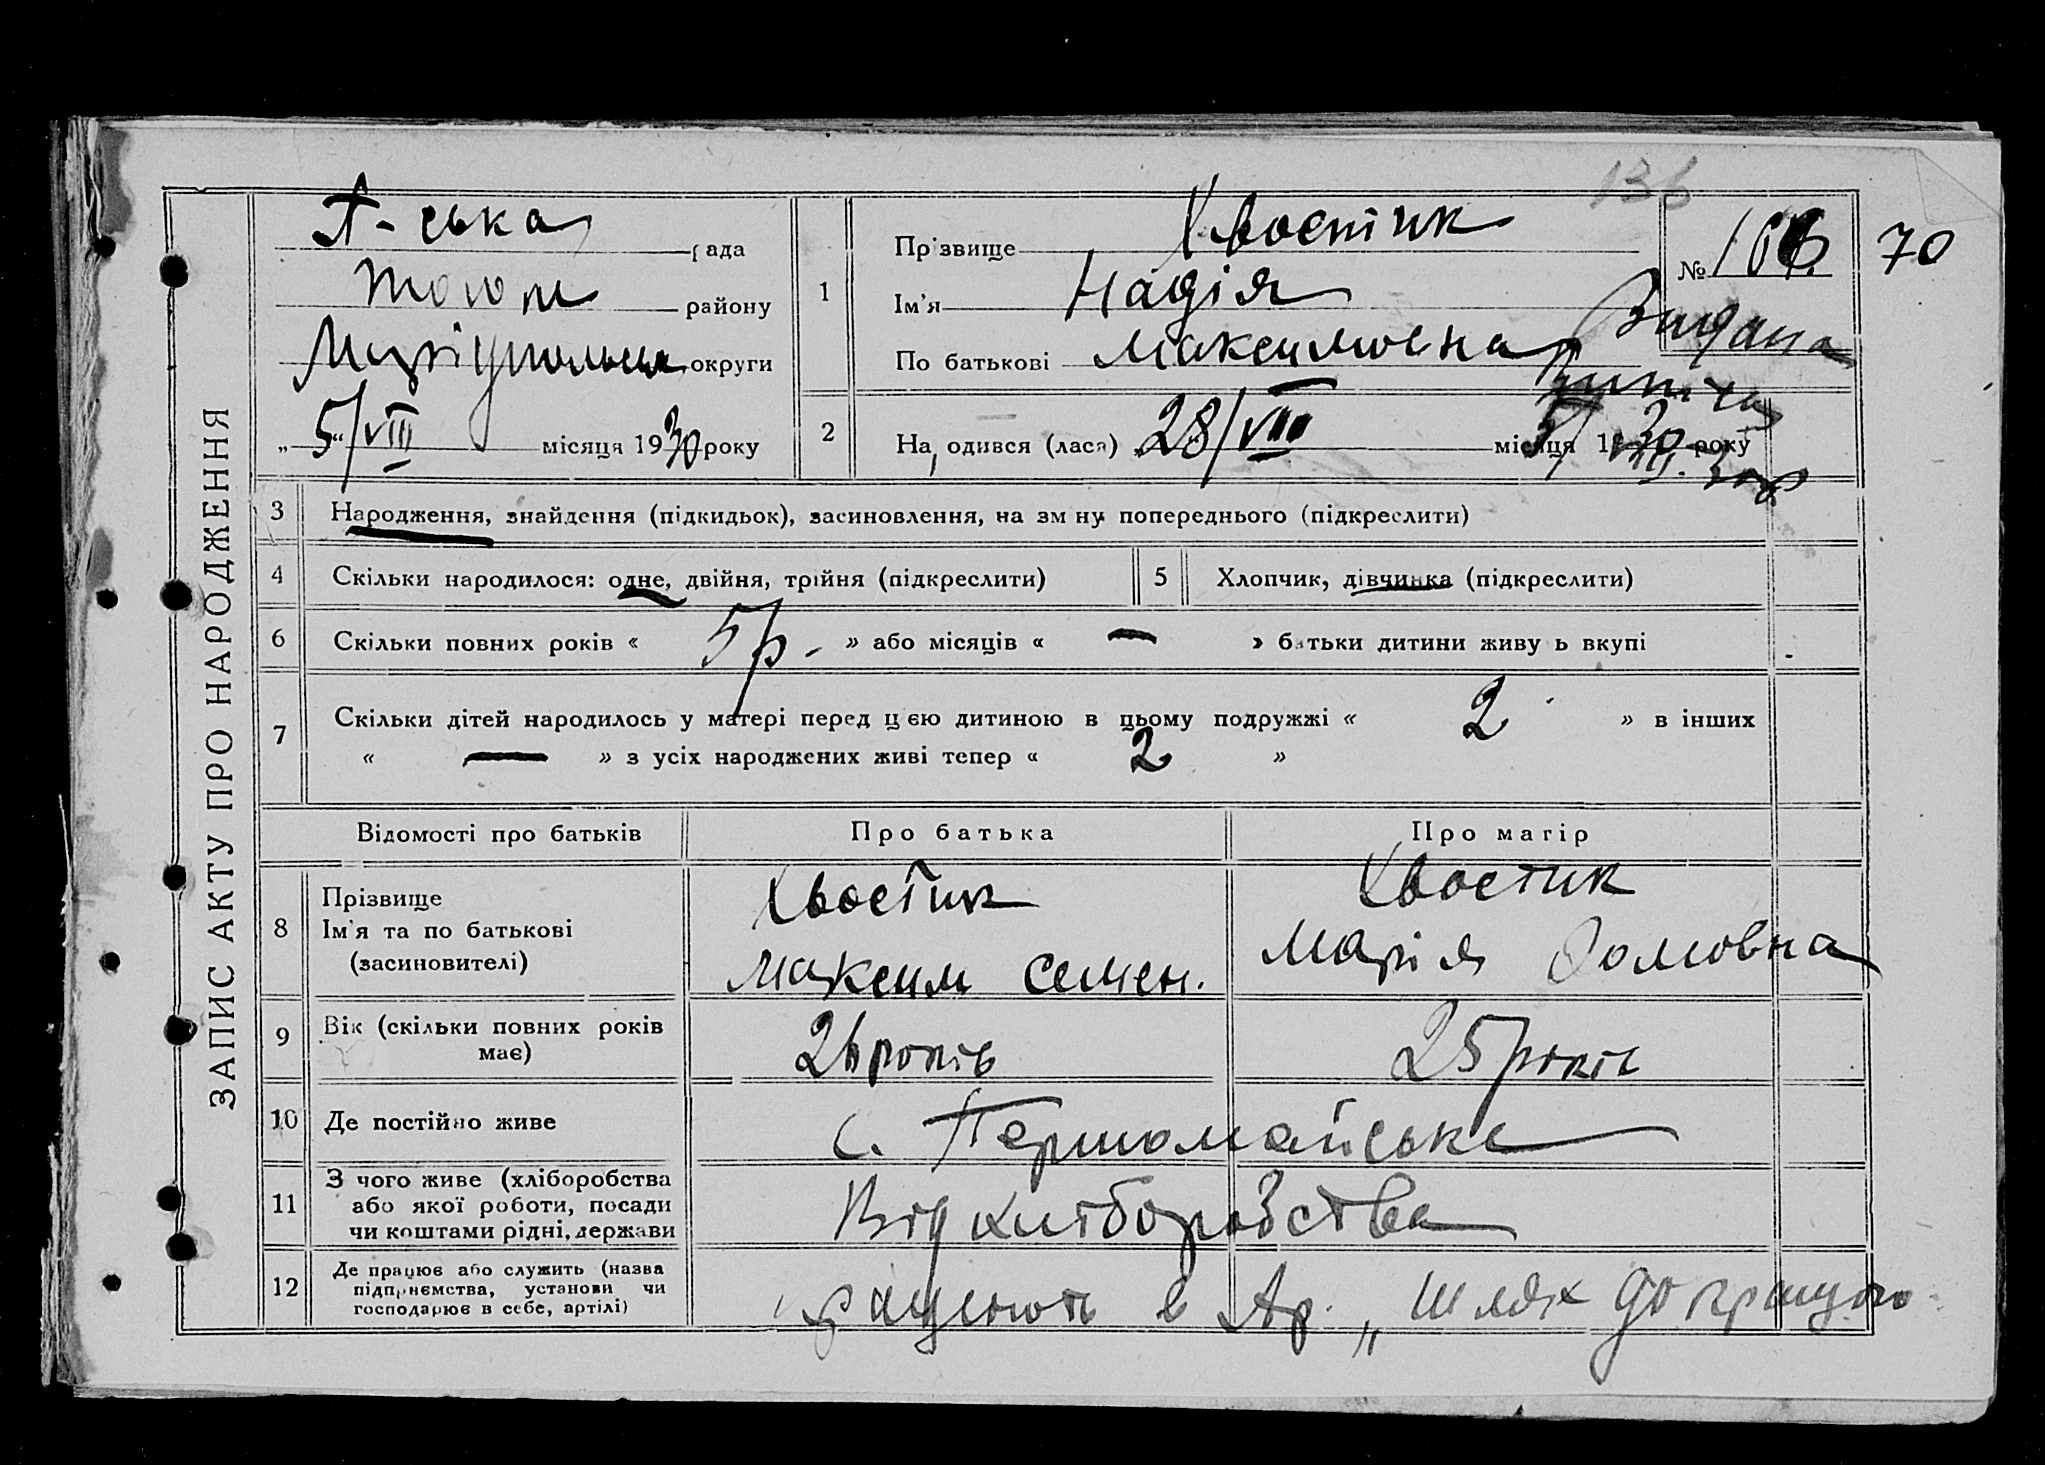 136
ЗАПИС АКТУ ПРО НАРОДЖЕННЯ
-ська рада
району
Маріупольськ округи
„5“/VIII місяця 1930 року
1
Прізвище Хвостик
Ім'я Надія
По батькові Максимовна
№ 70
Видана
2
На одився (лася) 28/VIII місяця 1930 року
3 Народження, знайдення (підкидьок), засиновлення, на зм ну попереднього (підкреслити)
4 Скільки народилося: одне, двійня, трійня (підкреслити)
5 Хлопчик, дівчинка (підкреслити)
6 Скільки повних років « 5 р. - » або місяців « — » батьки дитини живу ь вкупі
7 Скільки дітей народилось у матері перед ц єю дитиною в цьому подружжі « 2 » в інших
« — » з усіх народжених живі тепер « 2 »
Відомості про батьків Про батька Про матір
8 Прізвище
Ім'я та по батькові
(засиновителі)
Хвостик
Максим Семен.
Хвостик
Марія Фомовна
9 Вік (скільки повних років
має)
26 років 25 років
10 Де постійно живе с. Першомайське
11 З чого живе (хліборобства
або якої роботи, посади
чи коштами рідні, держави
Від хліборобства
12 Де працює або служить (назва
підприємства, установи чи
господарює в себе, артілі)
працюють в Ар. „Шлях до кращого